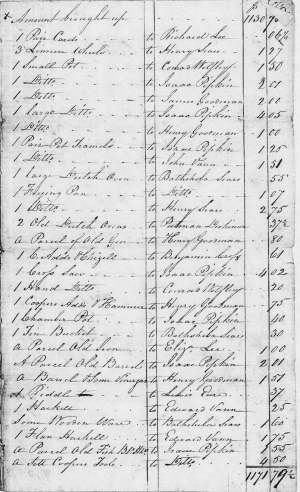 Amount brought up 1130 70
1 Pair Cards to Richard Lee 06¼
3 Linnen Wheels to Henry 1 27
1 Small Pot to 1 50
1 Ditto to Isaac Pipkin 2 50
1 Ditto to James Goodman 2 00
1 Large Ditto to Isaac Pipkin 4 05
1 Ditto to Henry Goodman 1 00
1 Pair Pot Tramels to Isaac Pipkin 1 25
1 Ditto to John Vann 1 51
1 large Dutch Oven to Bathsheba 55
1 Frying Pan to Ditto 1 07
1 Ditto to Henry 2 75
2 Old Dutch Ovens to 37½
A Parcel of Old to Henry Goodman 80
1 C. Adds & Chizell to Benjamin 61
1 Cross Saw to Isaac Pipkin 4 02
1 Hand Ditto to 20
1 Coopers Adds & Hammer to Henry Goodman 75
1 Chamber Pot to Isaac Pipkin 40
1 Tin Bucket to Bathsheba 30
A Parcel Old Iron to Eliz. Lee 1 00
A Parcel Old Barrels to Isaac Pipkin 2 01
A Barrel & Some Vinegar to Henry Goodman 1 51
1 Riddle to 37
1 Hackell to Edward Vann 25
Some Wooden Ware to Bathsheba 1 60
1 Flax Hackell to Edward Vann 1 75
A Parcel Old Fish to Isaac Pipkin 1 55
A Sett Coopers Tools to Ditto 4 50
1171 79½